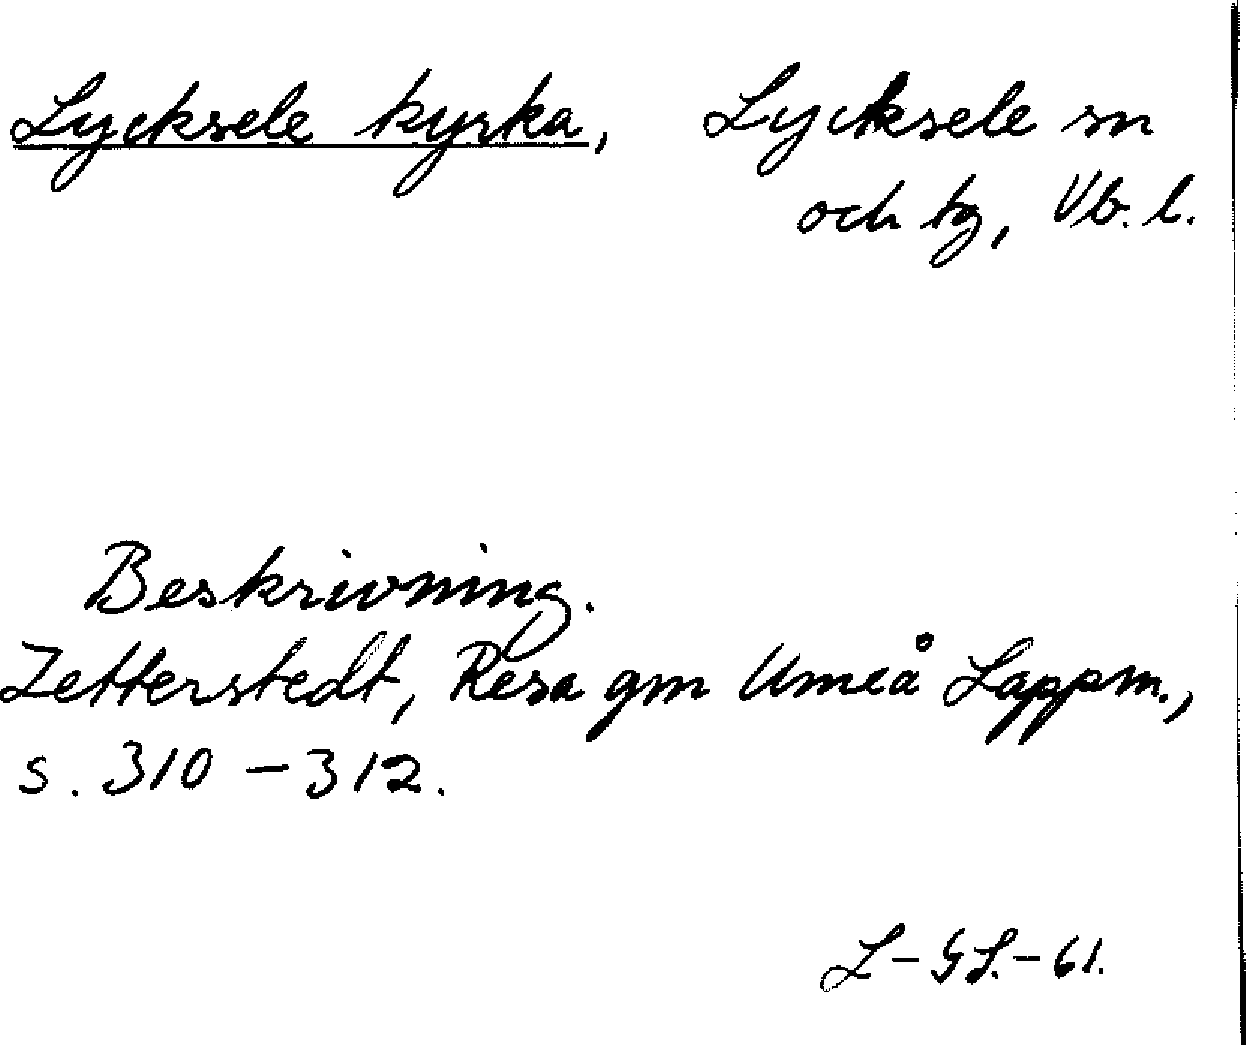 Lycksele kyrka, Lycksele sn
och tg, Vb. l.
Beskrivning.
Zetterstedt, Resa gm Umeå Lappm.,
s. 310 - 312.
L - GS. - 61.